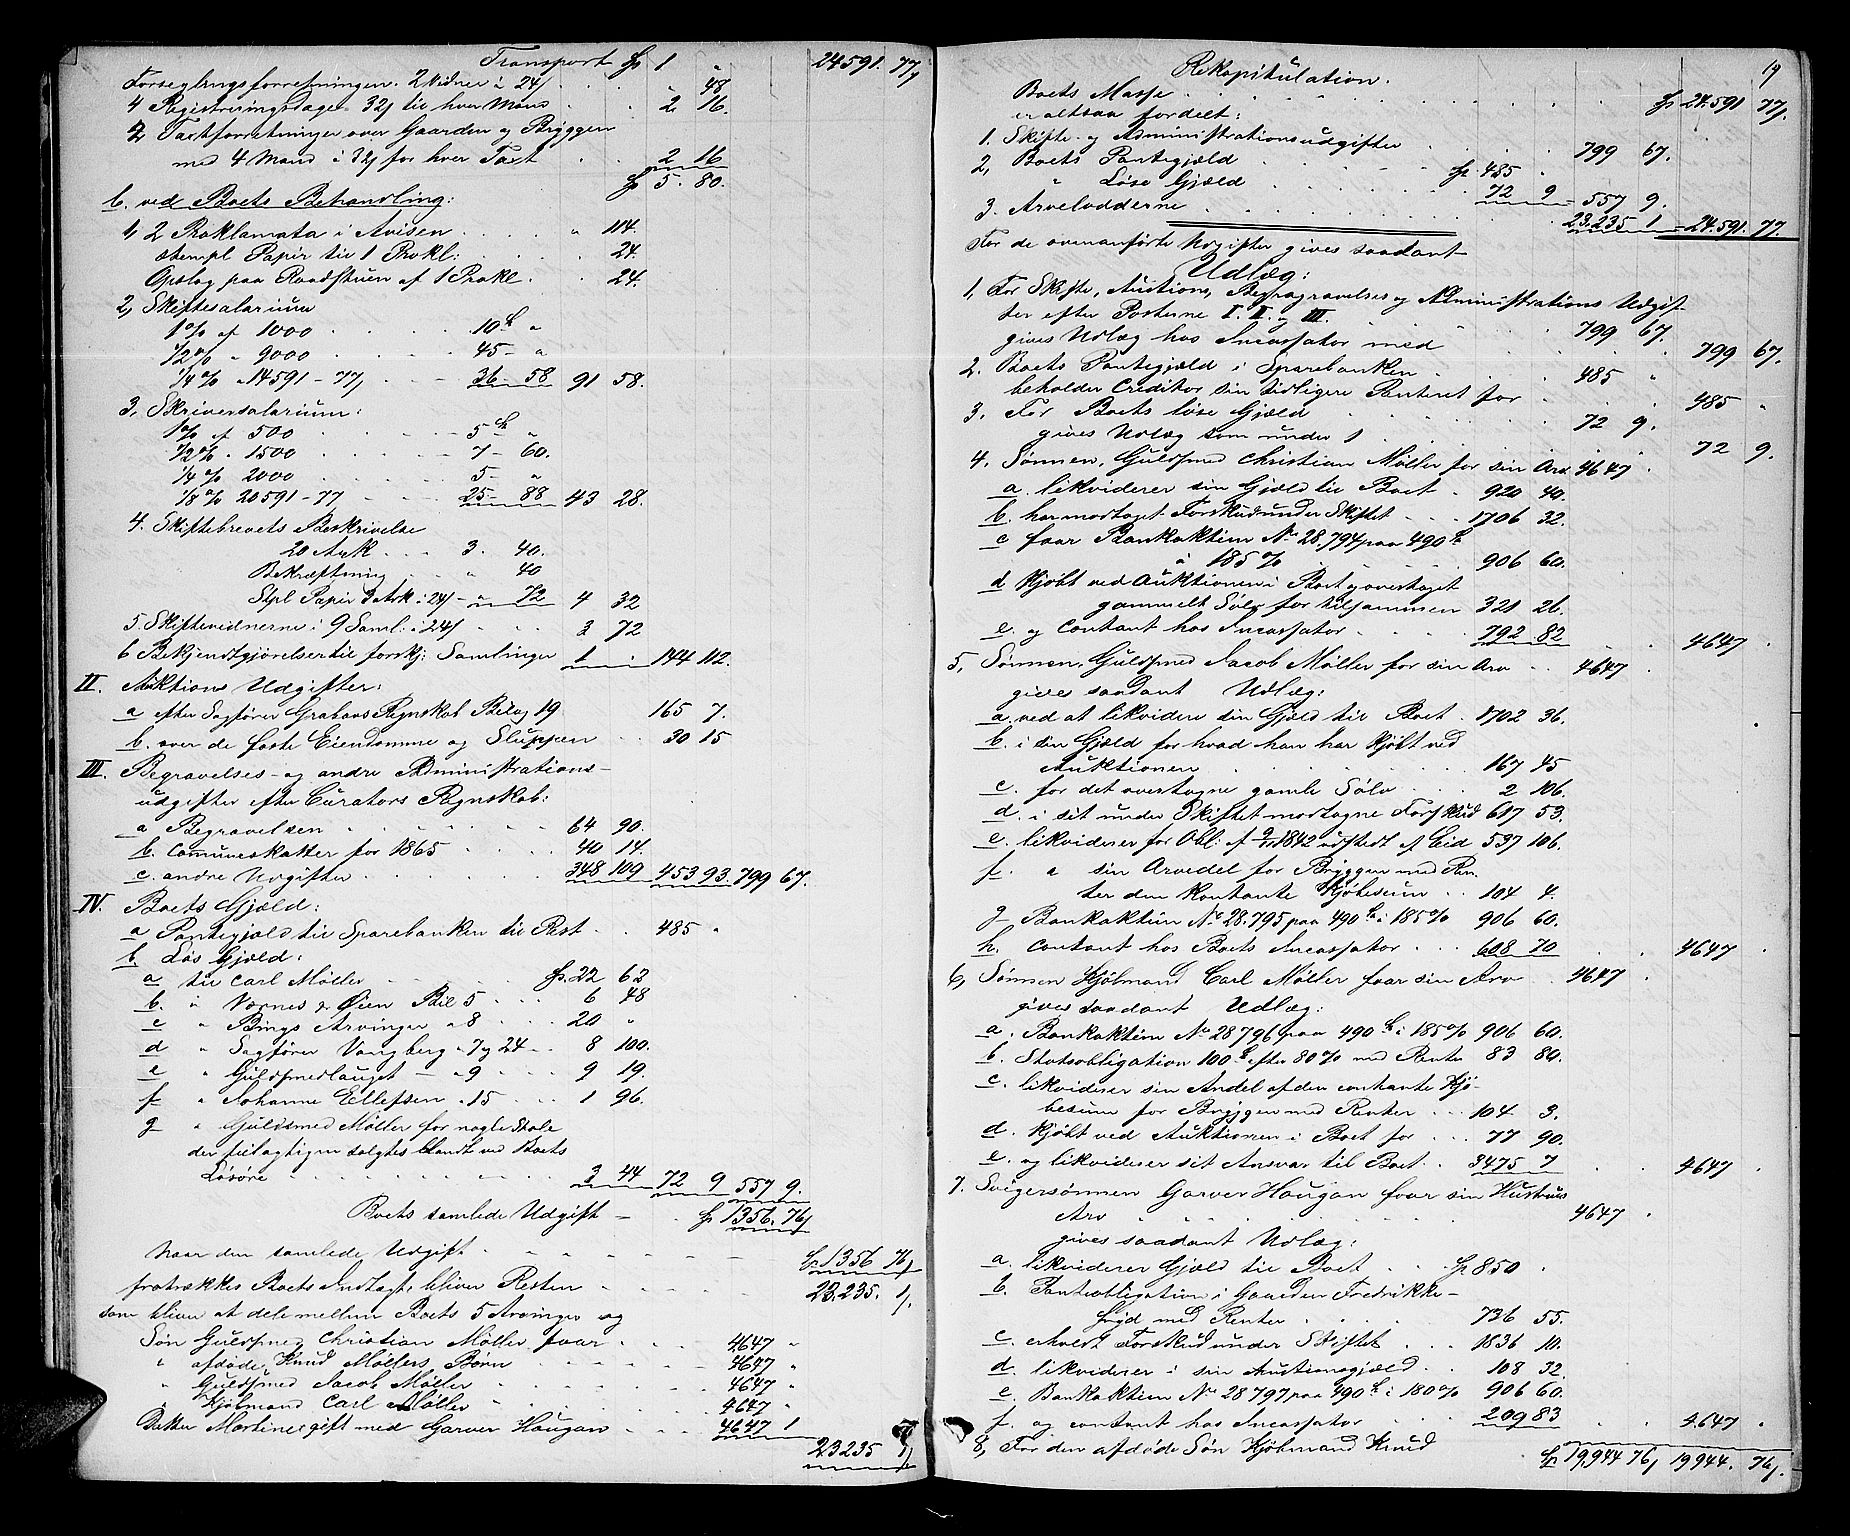 Transport Sp 1 " 24591. 77/
Forseglingsforretningen. 2 Vidner i 24/ . . . " 48
4 Registreringsdage. 32/ til hver Mand . . 2 16.
2 Taxtforretninger over Gaarden og Bryggen
med 4 Mand i 32/ for hver Taxt . . . 2 16
Sp 5. 80.
b. ved Boets Behandling:
1, 2 Proklamata i Avisen . . . . " 114.
stempl Papir til 1 Prokl: . . . 24.
Opslag paa Raadstuen af 1 Prokl. . . 24.
2, Skiftesalarium
1% af 1000 . . . . 10 "
1/2% " 9000 . . . . 45 - "
1/4% " 14591-77/ . . . 36 - 58 91 58.
3, Skriversalarium:
1% af 500 . . . . 5 "
1/2% " 1500 . . . . 7 - 60.
1/4% 2000 . . . . 5 - "
1/8% 20591-77 . . . 25 - 88 43 28.
4. Skiftebrevets Beskrivelse
20 Ark . . . 3. 40.
Bekræftning . . " 40
Stpl Papir 3 Ark i 24/ - " 72 4 32
5. Skiftevidnerne i 9 Saml: i 24/ . . . 3 72
6 Bekjendtgjørelser til forskj: Samlinger 1 " 144 112.
II. Auktions Udgifter:
a efter Sagfører Grabans Regnskab Bilag 19 165 7.
b. over de faste Eiendomme og Sluppen . . 30 15
III. Begravelses- og andre Administrations-
udgifter efter Curators Regnskab:
a Begravelsen . . . . 64 90.
b. Communeskatter for 1865 . . . 40 14.
c. andre Udgifter . . . . 348 109 453 93. 799 67.
IV. Boets Gjæld:
a Pantegjæld til Sparebanken til Rest . . 485 "
b. Løs Gjæld:
a til Carl Møller . . . Sp. 22 62
b. " Værnes & Øien Bil 5 . . . 6 48
c " Bings Arvinger " 8 . . . 20 "
d " Sagfører Vangberg " 7 og 24 . . 8 100.
e " Guldsmedlauget - " 9 . . . 9 19.
f " Johanne Ellefsen " 15 . . . 1 96.
g " Guldsmed Møller for nogle Stole
der feilagtigen solgtes blandt ved Boets
Løsøre . . . . 3 44 72 9 557 9.
Boets samlede Udgift - . . Sp 1356. 76/
Naar den samlede Udgift . . . . Sp. 1356 76/
fratrækkes Boets Indtægt, bliver Resten . . . 23.235. 1/.
som bliver at dele mellem Boets 5 Arvinger og
Søn Guldsmed Christian Møller faar . . . 4647 "
" afdøde Knud Møllers Børn . . . 4647 "
" Guldsmed Jacob Møller . . . 4647 "
" Kjøbmand Carl Møller . . . 4647 "
Datter Martine gift med Garver Haugan . . 4647 1
23235 1/
19
Rekapitulation.
Boets Masse . . . . Sp 24.591 77/.
er altsaa fordelt:
1. Skifte- og Administrationsudgifter . . . 799 67.
2, Boets Pantegjæld . . . Sp. 485 "
" Løse Gjæld . . . 72 9 557 9.
3. Arvelodderne . . . . 23.235 1 24.591. 77.
For de ovenanførte Udgifter gives saadant
Udlæg:
1, For Skifte, Auctions, Begravelses og Administrations Udgif-
ter efter Posterne I. II. og III. . . . 799 67.
gives Udlæg hos Incassator med . . . 799 67.
2. Boets Pantegjæld i Sparebanken . . . 485 "
beholder Creditor sin tidligere Panteret for . . 485 "
3. For Boets løse Gjæld . . . 72 9.
gives Udlæg som under 1 . . . 72 9.
4. Sønnen, Guldsmed Christian Møller for sin Arv 4647 .
a. likviderer sin Gjæld til Boet . 920 40.
b. har modtaget Forskud under Skiftet . . 1706 32.
c faar Bankaktien No 28.794 paa 490
à 185% . . . 906 60.
d kjøbt ved Auktionen i Boet og overtaget
gammelt Sølv for tilsammen 321 26.
e. og contant hos Incassator . . . 792 82 4647 .
5, Sønnen, Guldsmed Jacob Møller for sin Arv . . 4647 .
gives saadant Udlæg:
a. ved at likvidere sin Gjæld til Boet . 1702 36.
b. i sin Gjæld for hvad han har kjøbt ved
Auktionen . . . 167 45
c. for det overtagne gamle Sølv . . . 2 106.
d. i sit under Skiftet modtagne Forskud 617 53.
e. likviderer for Obl: af 9/11 1842 udstedt af Eid 537 106.
f. " sin Arvedel for Bryggen med Ren-
ter den Kontante Kjøbesum . . 104 4.
g Bankaktien No 28.795 paa 490 i 185% 906 60.
h. contant hos Boets Incassator . . . 608 70 4647 .
6, Sønnen Kjøbmand Carl Møller faar sin Arv . . 4647 .
gives saadant Udlæg:
a. Bankaktien No 28796 paa 490 i 185% 906 60.
b. Statsobligation 100 efter 80% med Renter 83 80.
c. likviderer sin Andel af den contante Kjø-
besum for Bryggen med Renter . . 104 3.
d. kjøbt ved Auktionen i Boet for . . 77 90.
e. og likviderer sit Ansvar til Boet . . 3475 7 4647 .
7. Svigersønnen Garver Haugan faar sin Hustrues
Arv . . . . 4647 .
gives saadant Udlæg:
a. likviderer Gjæld til Boet . . Sp 850 .
b. Panteobligation i Gaarden Fredrikke-
fryd med Renter . . . 736 55.
c. erholdt Forskud under Skiftet . . . 1836 10.
d. likviderer i sin Auctionsgjæld . . 108 32.
e. Bankaktien No 28797 paa 490 i 180% 906 60.
f. og contant hos Incassator . . . 209 83 4647 .
8, For den afdøde Søn Kjøbmand Knud Sp 19,944 76/ 19944. 76/.